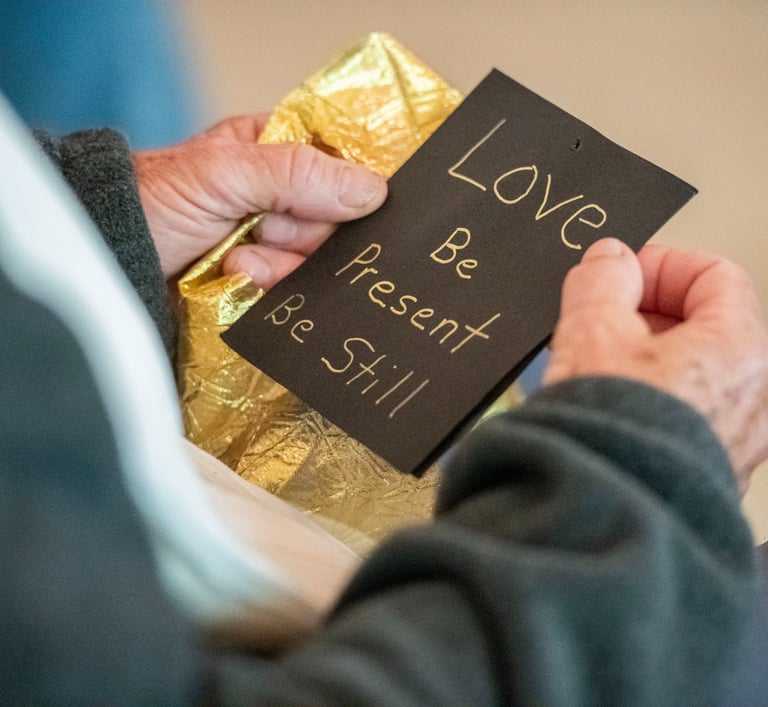 Love
Be
Present
Be Still